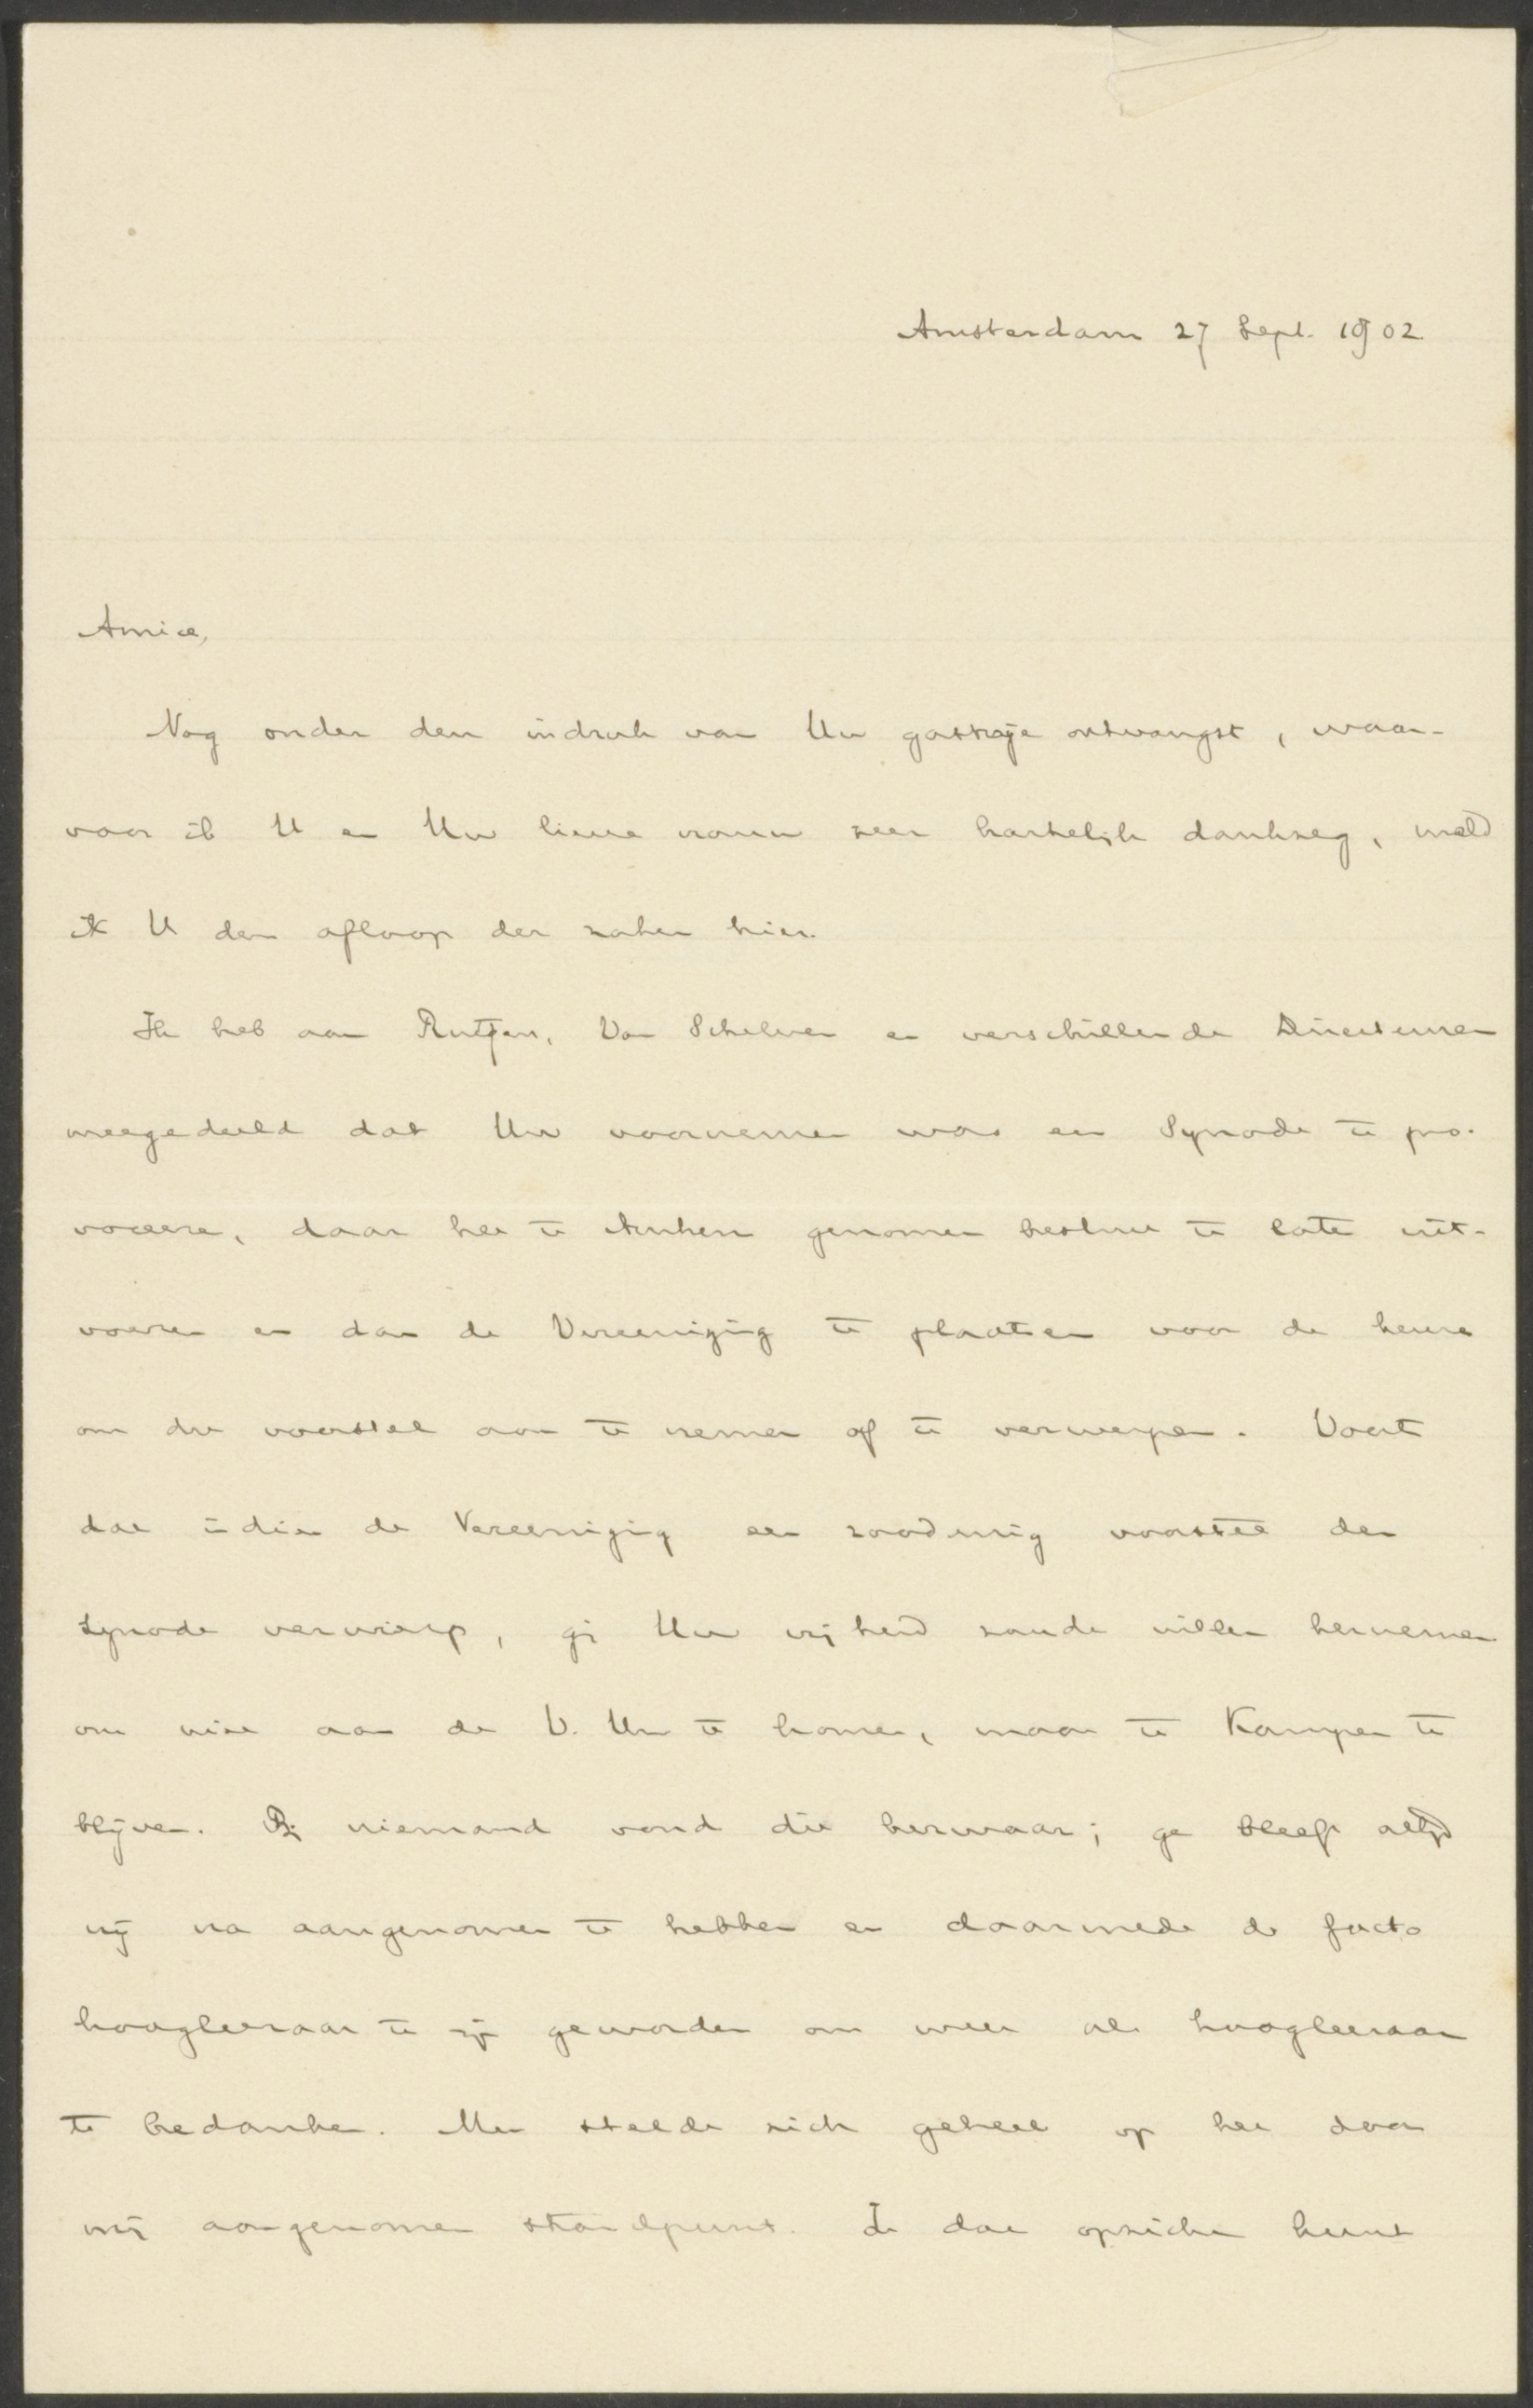 Amsterdam 27 Sept. 1902.
Amice,
Nog onder den indruk van Uw gastvrije ontvangst, waar-
voor ik U en Uw lieve vrouw zeer hartelijk dankzeg, meld
ik U den afloop der zaken hier.
Ik heb aan Rutgers, Van Schelven en verschillende Directeuren
meegedeeld dat Uw voornemen was een Synode te pro-
voceeren, daar het te Arnhem genomen besluit te laten uit-
voeren en dan de Vereeniging te plaatsen voor de keuze
om dit voorstel aan te nemen of te verwerpen. Voorts
dat indien de Vereeniging een zoodanig voorstel der
Synode verwierp, gij Uw vrijheid zoudt willen hernemen
om niet aan de V. Un te komen, maar te Kampen te
blijven. Bij niemand vond dit bezwaar; ge bleeft altijd
vrij na aangenomen te hebben en daarmede de facto
hoogleeraar te zijn geworden om weer als hoogleeraar
te bedanken. Men stelde zich geheel op het door
mij aangenomen standpunt. In dat opzicht kunt